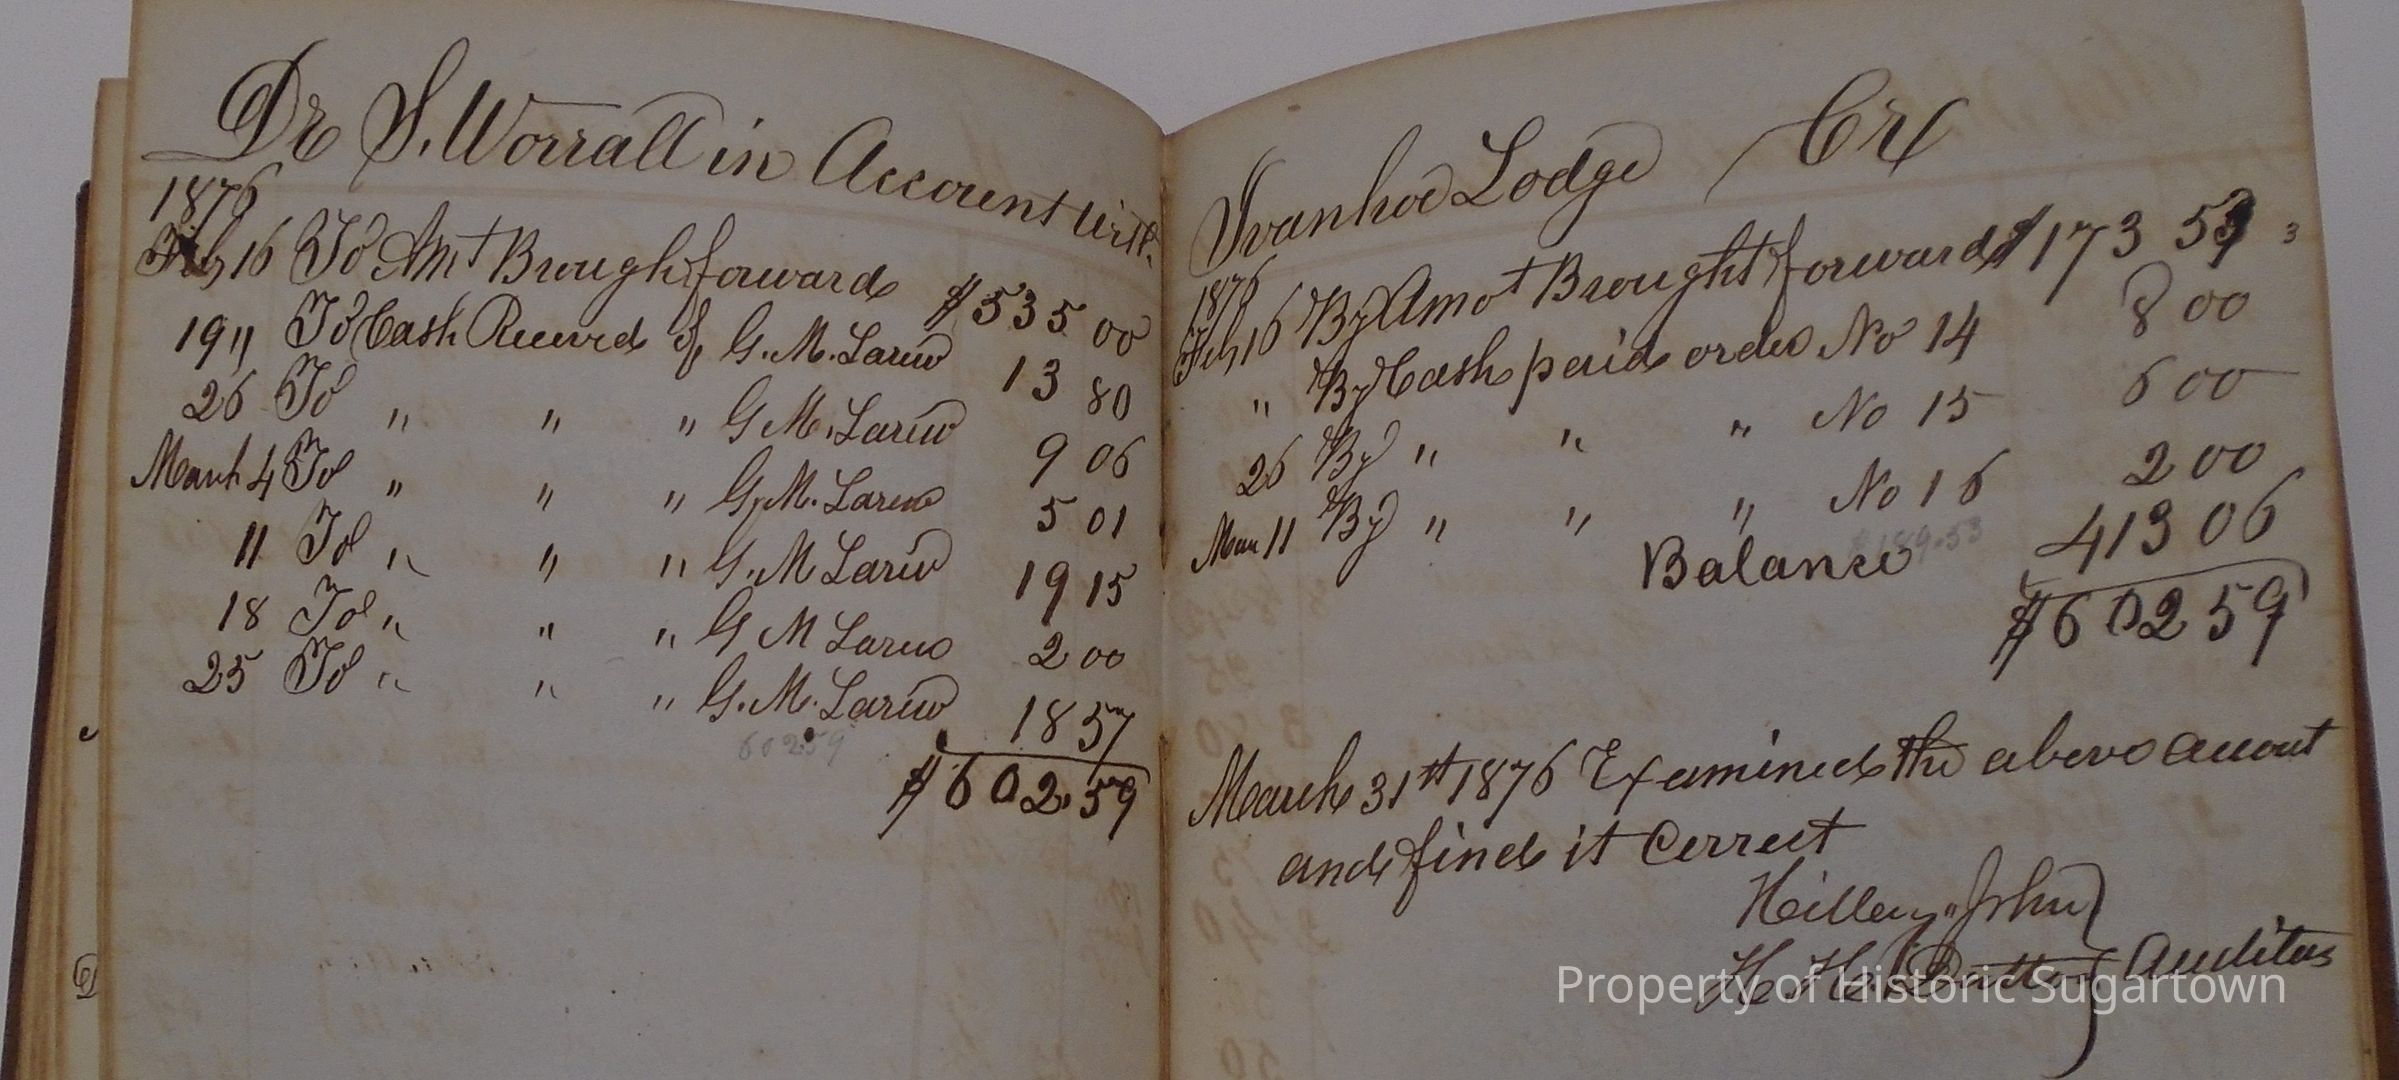 Dr S. Worrall in Account with
1876
Feb 16 To Amt Brough forward $535 00
19 " To Cash Received of G. M. Larew 13 80
26 To " " " G M. Larew 9 06
March 4 To " " " G. M. Larew 5 01
11 To " " " G. M Larew 19 15
18 To " " " G M Larew 2 00
25 To " " " G. M. Larew 18 57
60259
$602.59
Ivanhoe Lodge Cr
1876
Feb 16 By Amot Brought forward $173 53 3
" By Cash paid order No 14 8 00
26 By " " " No 15 6 00
Mar 11 By " " " No 16 2 00
$189.53
Balance 413 06
$602 59
March 31st 1876 Examined the above account
and find it Correct
Hilley John
H. H. Auditors
Property of Historic Sugartown